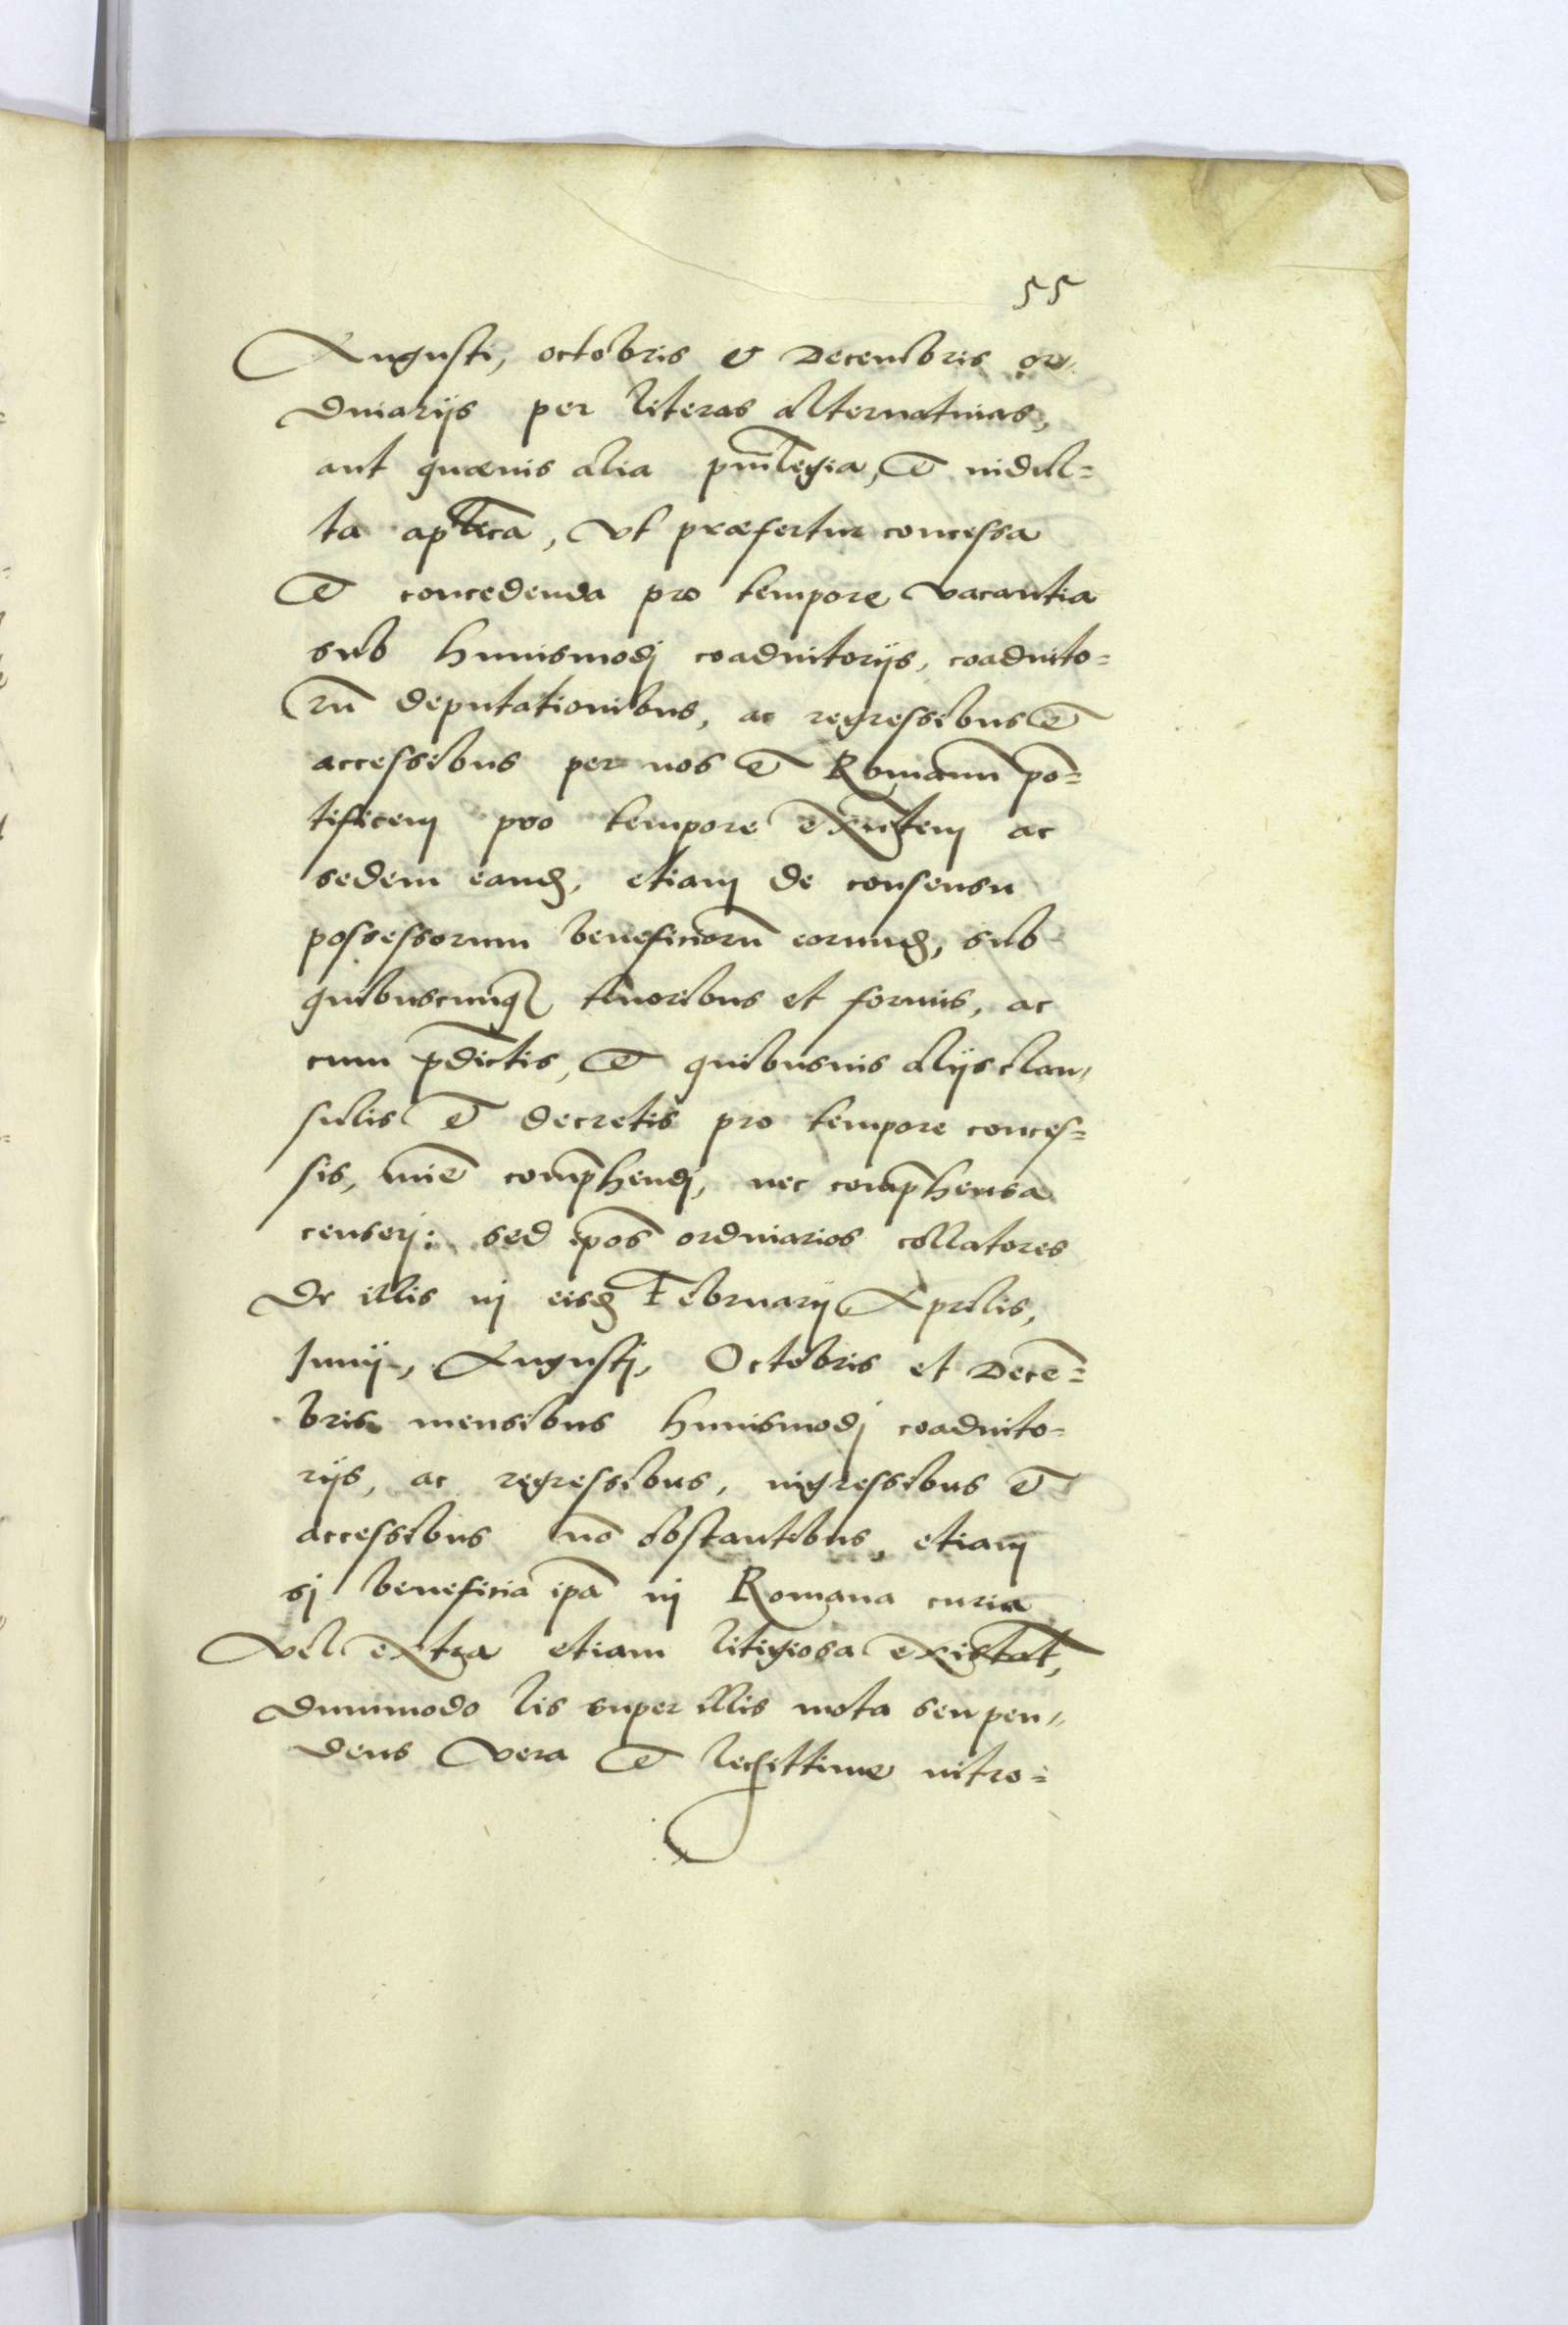 55
Augusti, octobris & Decembris or„
dinarijs per literas alternatiuas,
aut quæuis alia priuilegia, & indul=
ta aplica, vt præfertur concessa
& concedenda pro tempore vacantia
sub huiusmodj coadiutorijs, coadiuto=
rū deputationibus, ac regressibus &
accessibus per nos & Romanū pō=
tificem pro tempore exñtem ac
sedem eand, etiam de consensu
possessorum beneficiorū eorund, sub
quibuscunq tenoribus et formis, ac
cum p̄dictis, & quibusuis alijs clau„
sulis & decretis pro tempore conces=
sis, mīe comp̄hendj, nec comp̄hensa
censerj: sed ip̄os ordinarios collatores
de illis in eisd Februarij Aprilis,
Junij, Augustj, Octobris et Decē=
bris mensibus huiusmodj coadiuto=
rijs, ac regressibus, ingressibus &
accessibus nō obstantibus, etiam
sj beneficia ip̄a in Romana curia
vel extra etiam litigiosa existāt,
dummodo lis super illis mota seu pen„
dens vera & legittime intro=